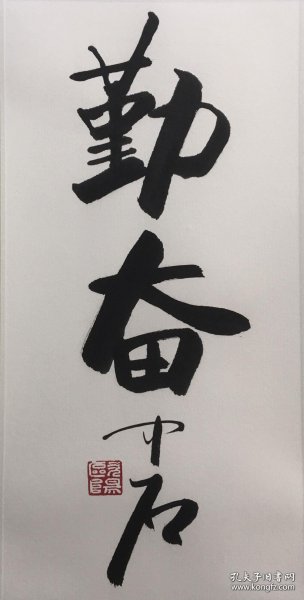 勤奋
中石
孔夫子旧书网
www.kongfz.com